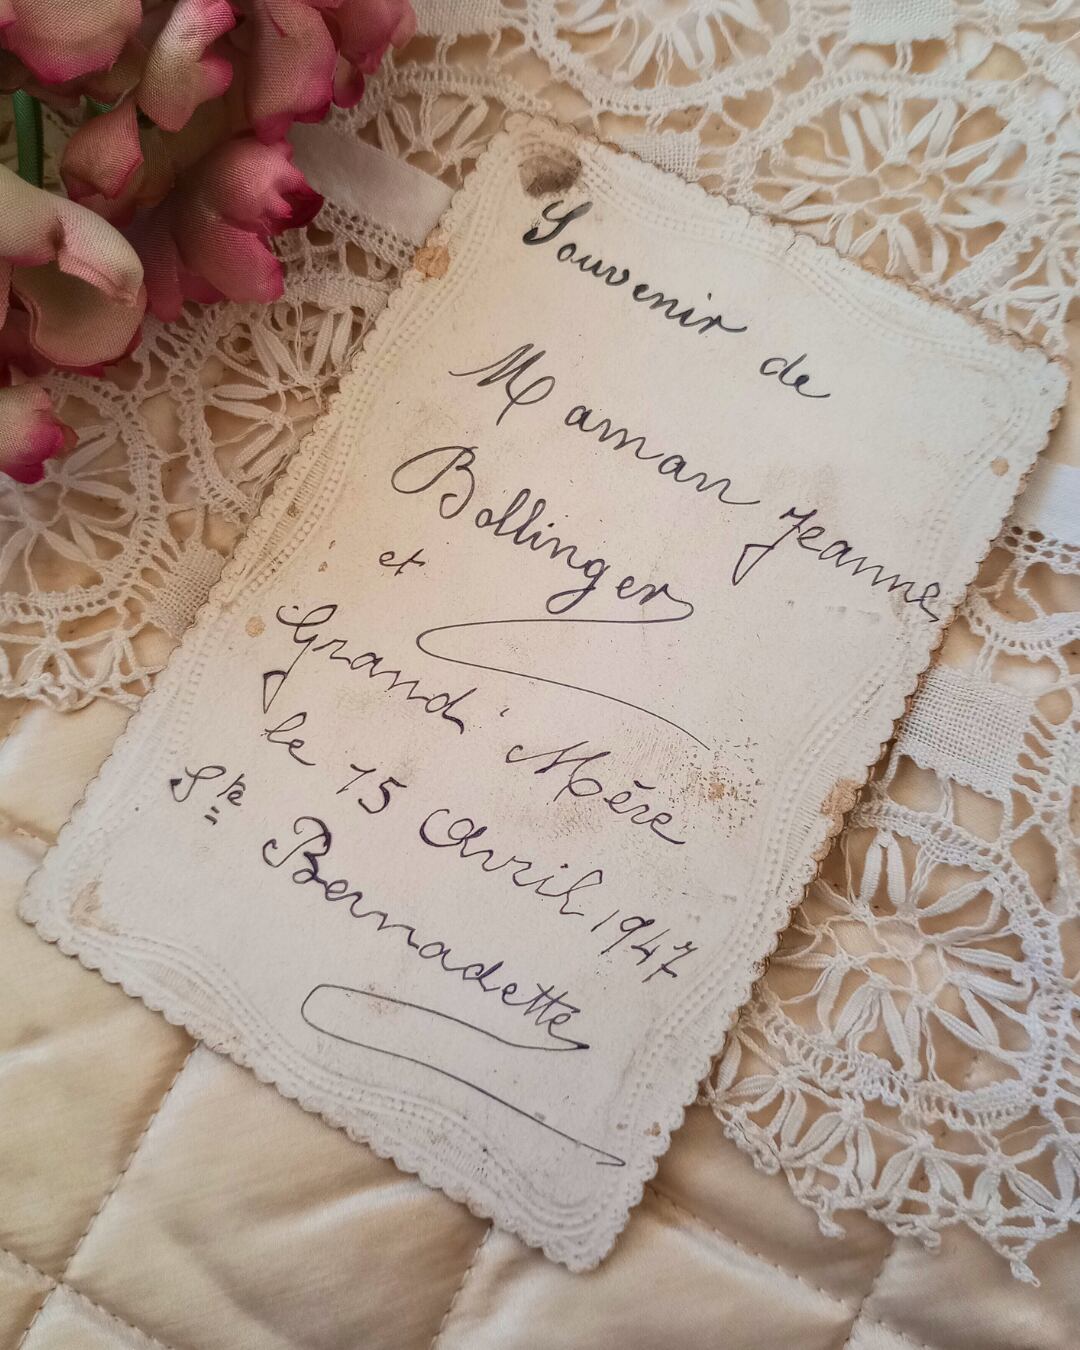 Souvenir de
Maman Jeanne
Bollinger
et
Grand' Mère
le 15 Avril 1947
Ste Bernadette